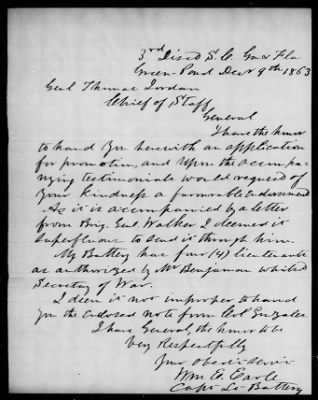 3rd Dist S. C. Ga & Fla
Green Pond Decr 9th 1863
Genl Thomas Jordan
Chief of Staff
General
I have the honor
to hand you herewith an application
for promotion, and upon the accompa-
nying testimonials would request of
your kindness a favourable endorsement
As it is accompanied by a letter
from Brig. Genl Walker I deemed it
superfluous to send it through him.
My Battery has four (4) lieutenants
as authorized by Mr Benjamin whilst
Secretary of War.
I deem it not improper to hand
you the endorsed note from Col Gonzales
I have General, the honor to be
Very Respectfully
Your Obedt Servt
Wm E. Earle
Capt Lt Battery